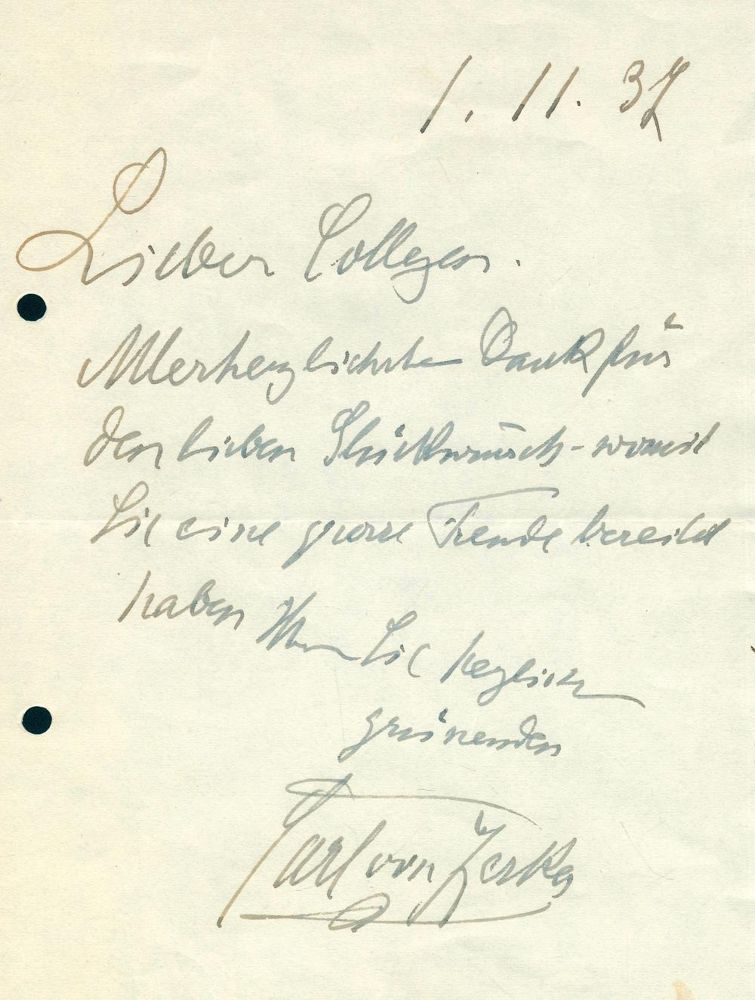 1. 11. 37
Lieber College.
Allerherzlichsten Dank für
den lieben Glückwunsch – womit
Sie eine grosse Freude bereitet
haben Ihren Sie herzlich
grüssenden
Carl von Zeska